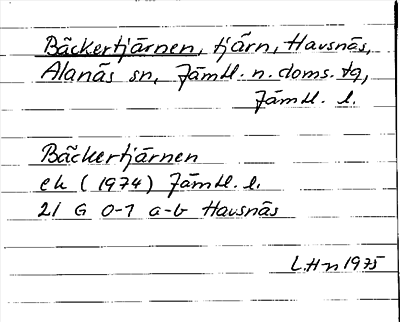 Bäckertjärnen, tjärn, Havsnäs,
Alanäs sn, Jämtl. n. doms. tg,
Jämtl. l.
Bäckertjärnen
ek (1974) Jämtl. l.
21 G 0-1 a-b Havsnäs
L.H-n 1975